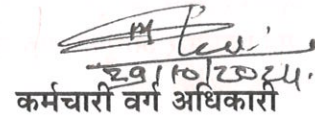 29/10/2024.
कर्मचारी वर्ग अधिकारी